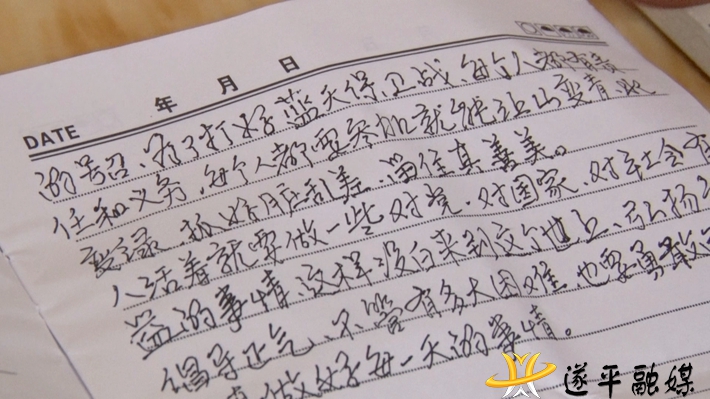 年 月 日
DATE
的号召、为了打好蓝天保卫战每个人都有责
任和义务,每个人都要参加就能让山变青水
变绿、抓好脏乱差、留住真善美。
人活着就要做一些对党、对国家、对社会有
益的事情、这样没白来到这个世上、弘扬
倡导正气、不管有多大困难、也要勇敢
做好每一天的事情。
遂平融媒